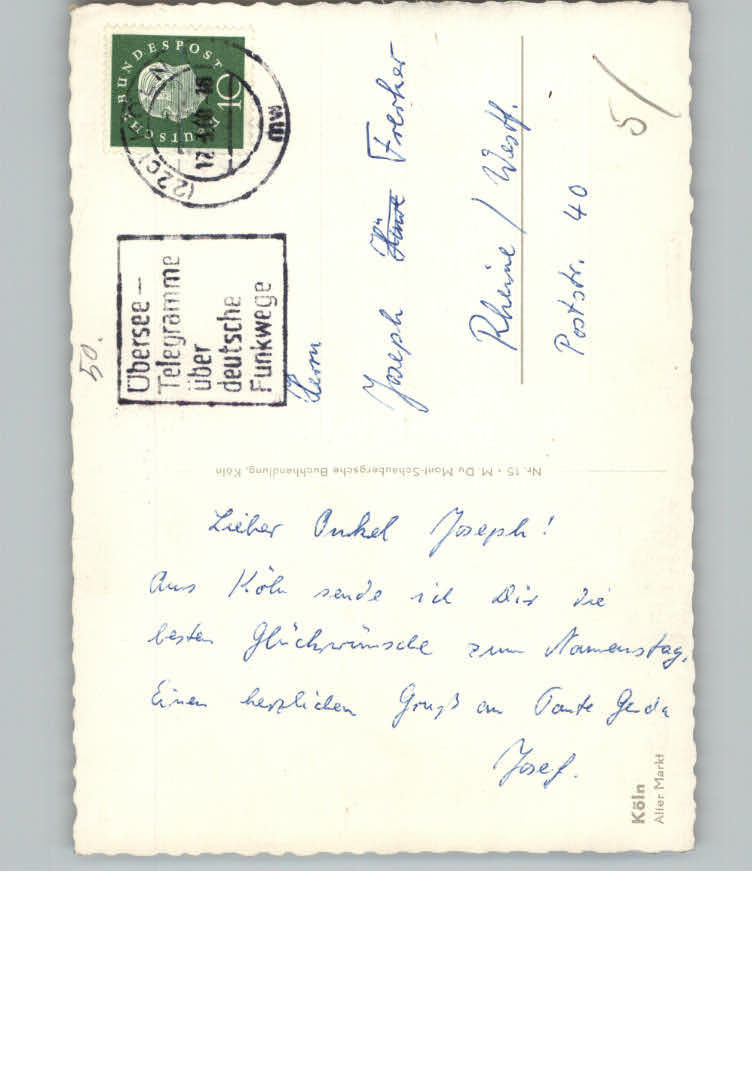 Lieber Onkel Joseph!
Aus Köln sende ich Dir die
besten Glückwünsche zum Namenstag.
Einen herzlichen Gruß an Tante Gerda
Josef.
Köln
Alter Markt
Nr. 15 · M. Du Mont-Schaubergsche Buchhandlung, Köln
DEUTSCHE BUNDESPOST
10
(22c)
Übersee-
Telegramme
über
deutsche
Funkwege
50.
5/
Herrn
Joseph
Rheine / Westf.
Poststr. 40